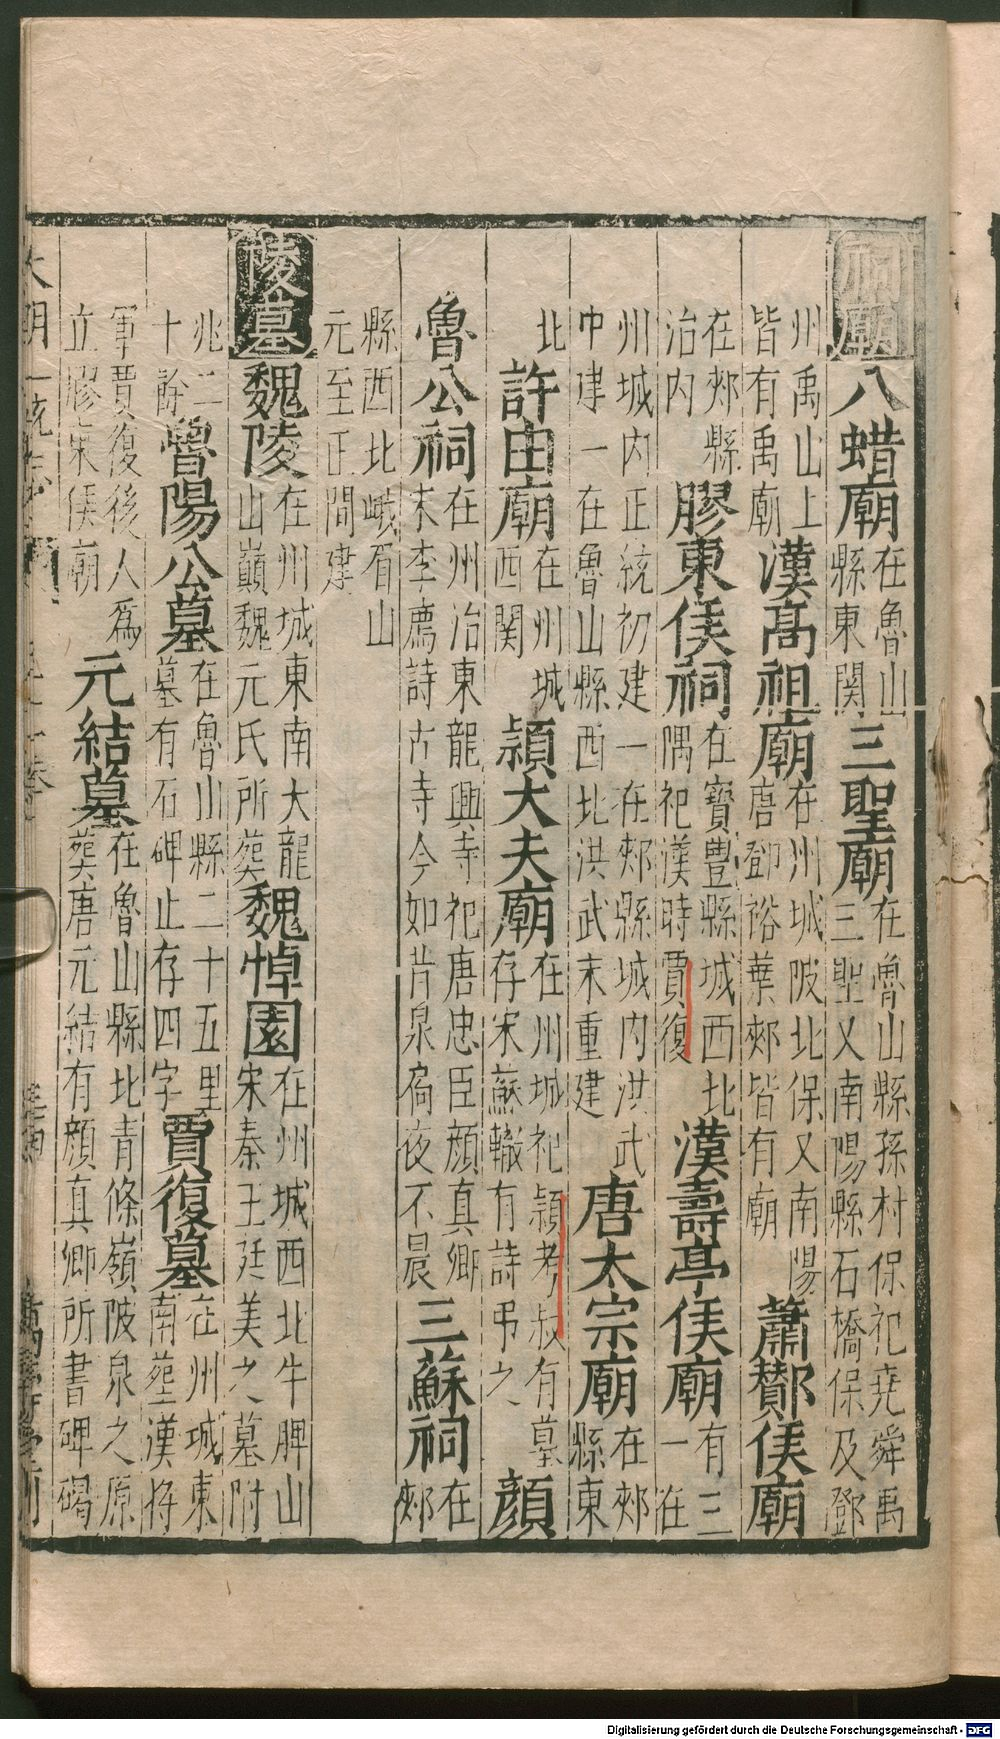 祠廟 八蜡廟 在魯山縣東關 三聖廟 在魯山縣孫村保祀堯舜禹三聖又南陽縣石橋保及鄧
州禹山上皆有禹廟 漢高祖廟 在州城陂北保又南陽唐鄧裕葉郟皆有廟 蕭酇侯廟
在郟縣治内 膠東侯祠 在寶豐縣城西北隅祀漢時賈復 漢壽亭侯廟 有三一在
州城内正統初建一在郟縣城内洪武中建一在魯山縣西北洪武末重建 唐太宗廟 在郟縣東
北 許由廟 在州城西関 頴大夫廟 在州城祀頴考叔有墓存宋蘇轍有詩弔之 顏
魯公祠 在州治東龍興寺祀唐忠臣顔真卿末李廌詩古寺今如昔泉扃夜不晨 三蘇祠 在郟
縣西北峨眉山元至正間建
陵墓 魏陵 在州城東南大龍山巔魏元氏所葬 魏悼園 在州城西北牛脾山宋秦王廷美之墓附
兆二十餘 魯陽公墓 在魯山縣二十五里墓有石碑止存四字 賈復墓 在州城東南葬漢將
軍賈復後人爲立膠東侯廟 元結墓 在魯山縣北青條嶺陂泉之原葬唐元結有顔真卿所書碑碣
大明一統志 卷 萬壽堂刊
Digitalisierung gefördert durch die Deutsche Forschungsgemeinschaft - DFG